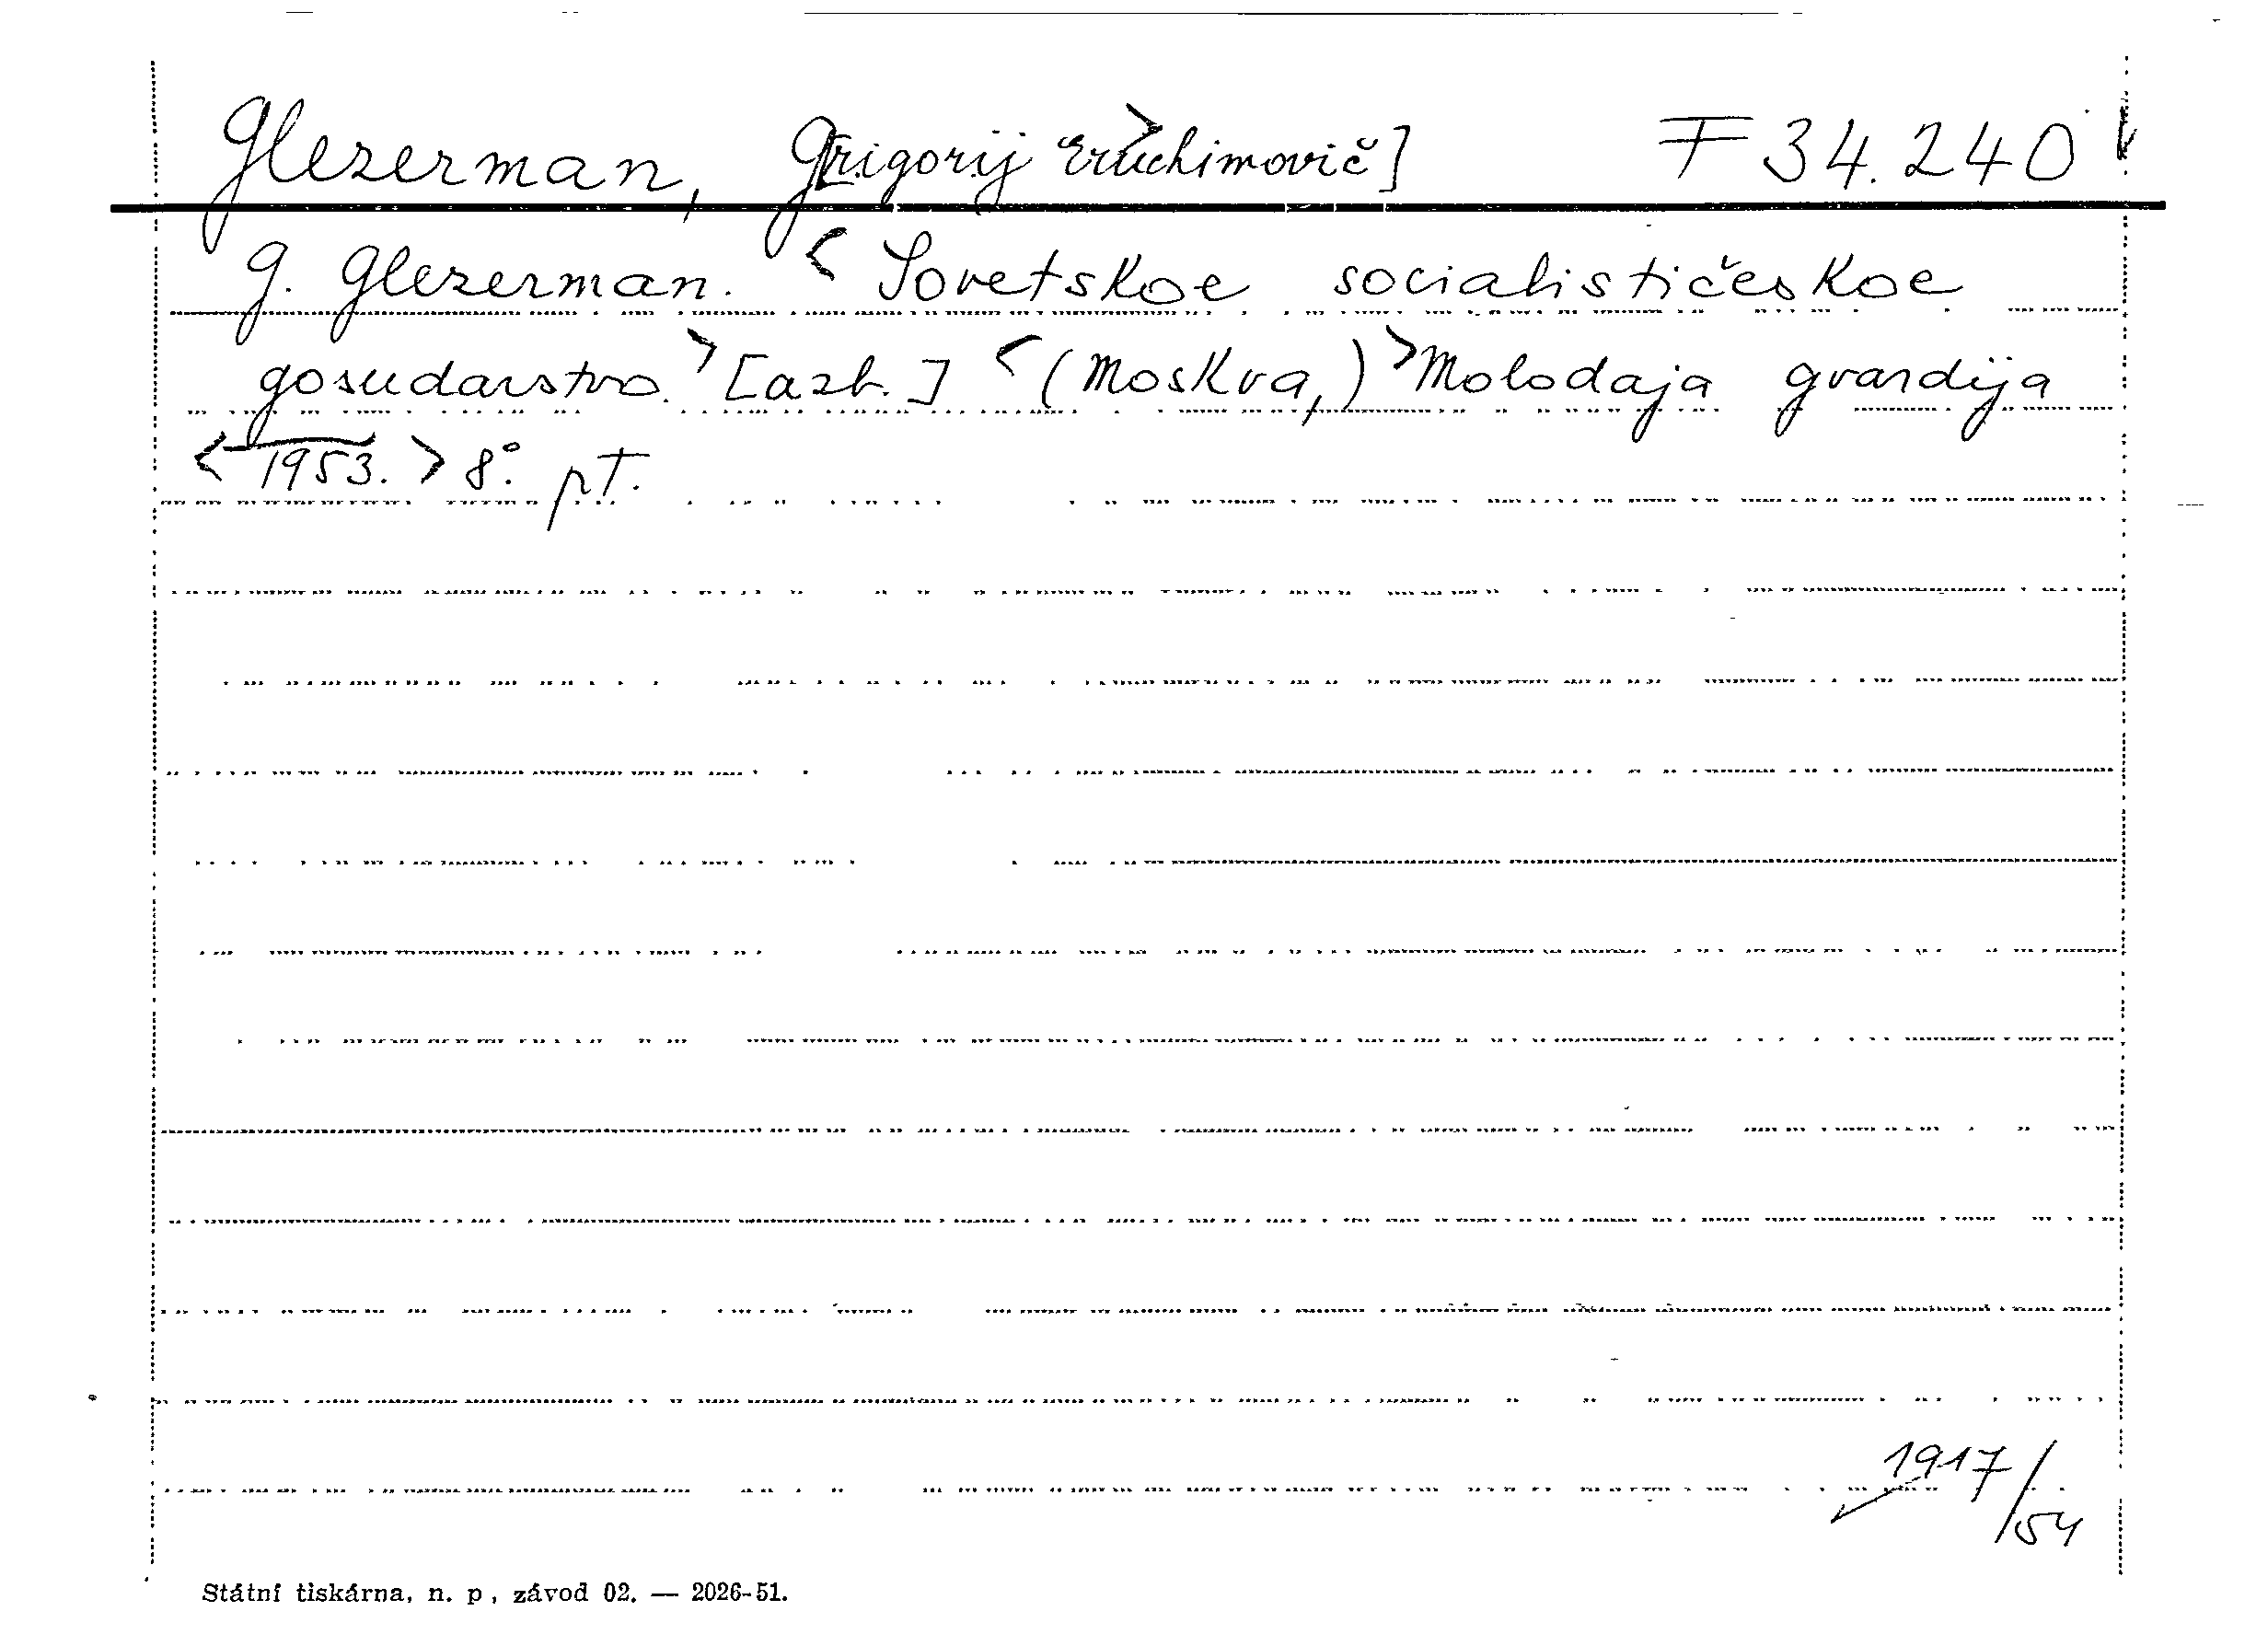 Glezerman, G[rigorij Eruchimovič] F 34.240
G. Glezerman. < Sovetskoe socialističeskoe
gosudarstvo. > [azb.] < (Moskva,) > Molodaja gvardija
< 1953. > 8°. pt.
1917/54
Státní tiskárna, n. p, závod 02. — 2026-51.